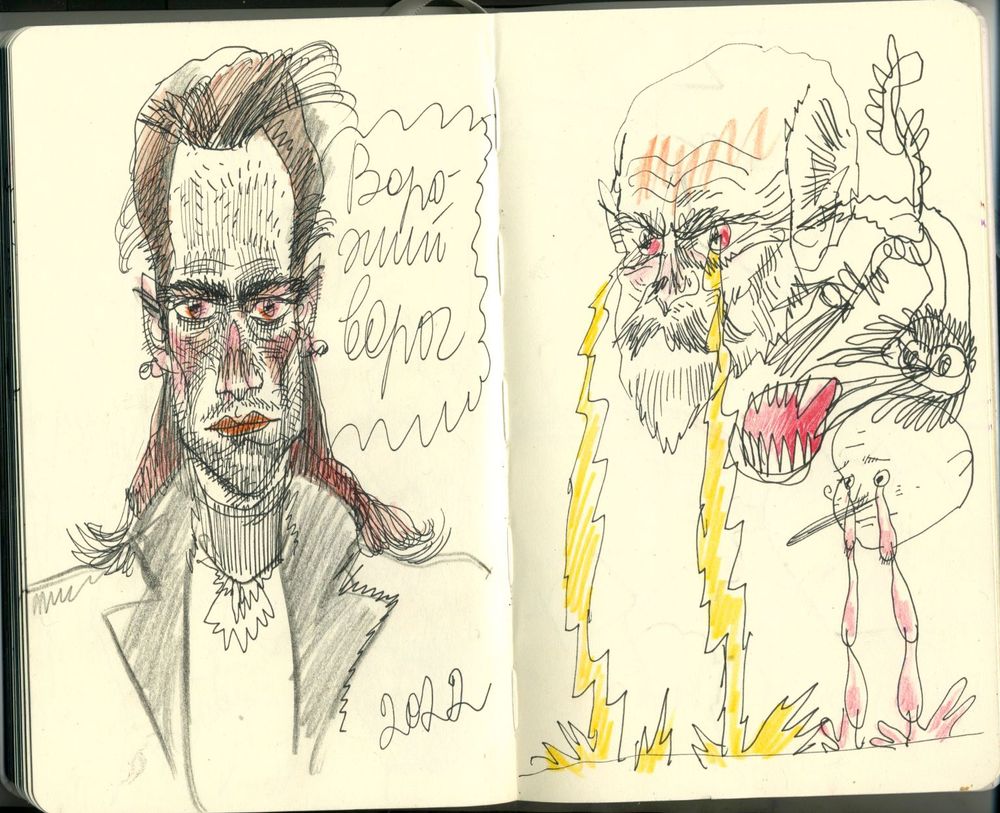 Воро-
жий
ворог
2022